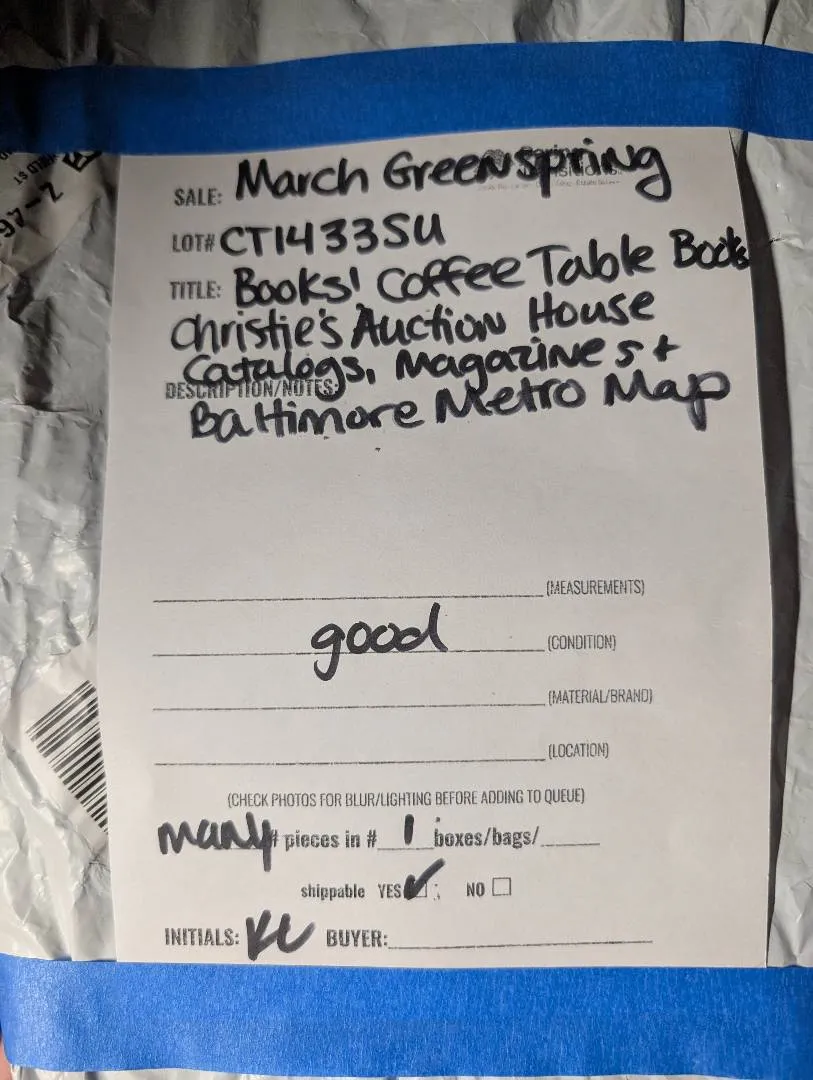 SALE: March Greenspring
LOT# CT1433SU
TITLE: Books! Coffee Table Books
Christie's Auction House
Catalogs, Magazines +
DESCRIPTION/NOTES:
Baltimore Metro Map
(MEASUREMENTS)
good (CONDITION)
(MATERIAL/BRAND)
(LOCATION)
(CHECK PHOTOS FOR BLUR/LIGHTING BEFORE ADDING TO QUEUE)
many # pieces in # 1 boxes/bags/
shippable YES ✔ NO
INITIALS: BUYER: